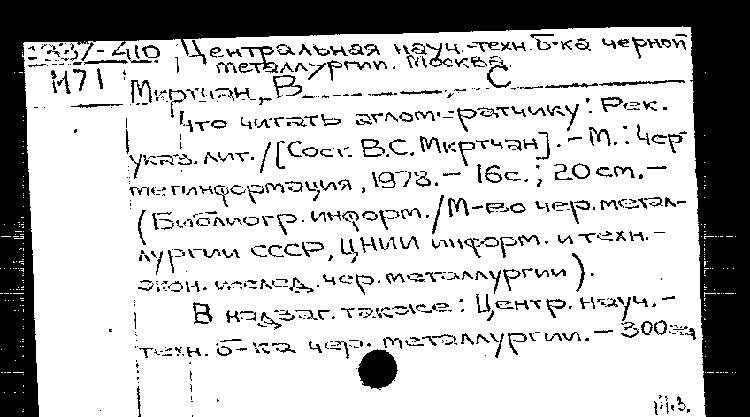 337-410 Центральная науч.-техн. б-ка черной
металлургии. Москва.
М71 Мкртчан, В , С
Что читать аглом-ратчику: Рек.
указ. лит. /[Сост. В.С. Мкртчан]. - М.: Чер-
метинформация, 1978. - 16с.; 20 см. -
(Библиогр. информ. /М-во чер. метал-
лургии СССР, ЦНИИ информ. и техн.-
экон. исслед. чер. металлургии).
В надзаг. также: Центр. науч.-
техн. б-ка чер. металлургии. - 300 экз